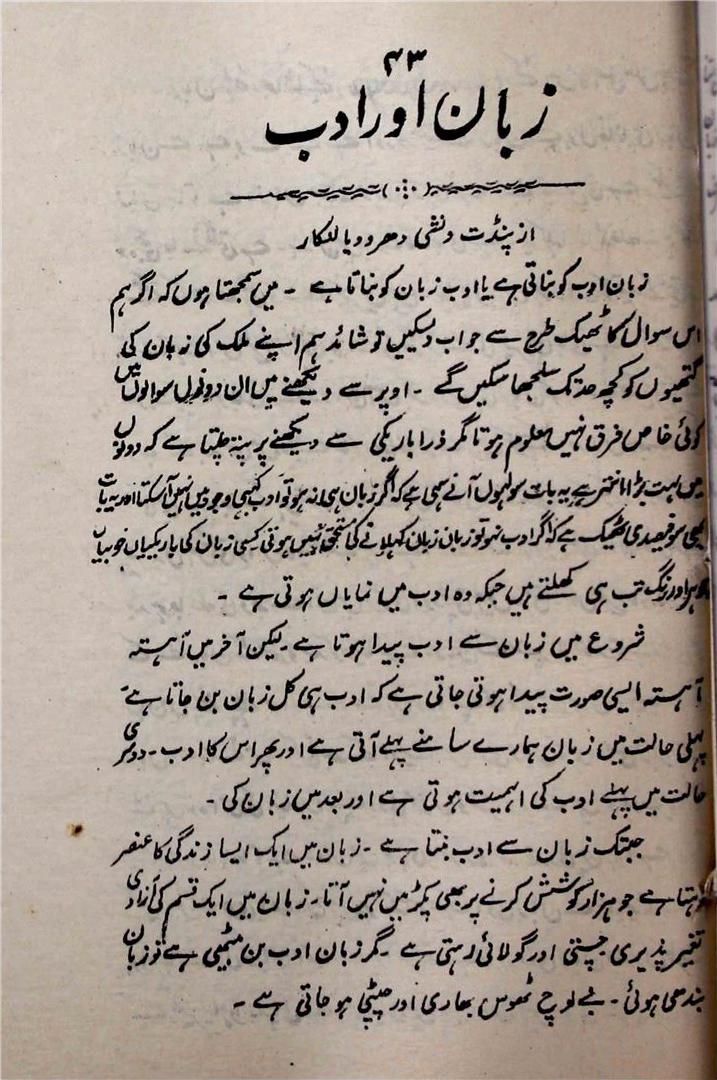 ۴۳
زبان اور ادب
از پنڈت ونشی دھر ودیا لنکار
زبان ادب کو بناتی ہے یا ادب زبان کو بناتا ہے ۔ میں سمجھتا ہوں کہ اگر ہم
اس سوال کا ٹھیک طرح سے جواب دیسکیں تو شائد ہم اپنے ملک کی زبان کی
گتھیوں کو کچھ حد تک سلجھا سکیں گے ۔ اوپر سے دیکھنے میں ان دونوں سوالوں میں
کوئی خاص فرق نہیں معلوم ہوتا مگر ذرا باریکی سے دیکھنے پر پتہ چلتا ہے کہ دونوں
میں بہت بڑا انتر ہے یہ بات سولہوں آنے سہی ہے کہ اگر زبان ہی نہ ہو تو ادب کبھی وجود میں نہیں آسکتا اور یہ بات
بھی سو فیصدی ٹھیک ہے کہ اگر ادب نہو تو زبان زبان کہلانے کی مستحق نہیں ہوتی کسی زبان کی باریکیاں خوبیاں
جوہر اور رنگ تب ہی کھلتے ہیں جبکہ وہ ادب میں نمایاں ہوتی ہے ۔
شروع میں زبان سے ادب پیدا ہوتا ہے ۔ لیکن آخر میں آہستہ
آہستہ ایسی صورت پیدا ہوتی جاتی ہے کہ ادب ہی کل زبان بن جاتا ہے ۔
پہلی حالت میں زبان ہمارے سامنے پہلے آتی ہے اور پھر اس کا ادب ۔ دوسری
حالت میں پہلے ادب کی اہمیت ہوتی ہے اور بعد میں زبان کی ۔
جبتک زبان سے ادب بنتا ہے ۔ زبان میں ایک ایسا زندگی کا عنصر
رہتا ہے جو ہزار کوشش کرنے پر بھی پکڑ میں نہیں آتا ۔ زبان میں ایک قسم کی آزادی
تغیر پذیری چستی اور گولائی رہتی ہے ۔ مگر زبان ادب بن بیٹھی ہے تو زبان
بندھی ہوئی ۔ بے لوچ ٹھوس بھاری اور چپٹی ہو جاتی ہے ۔